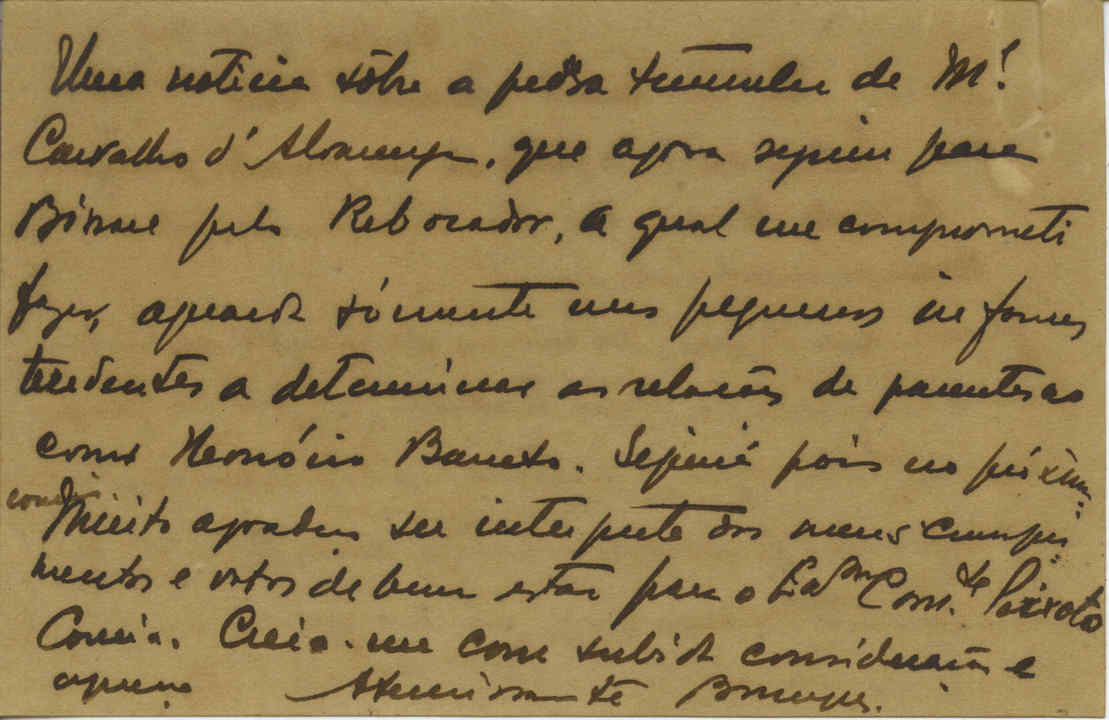 Uma notícia sôbre a pedra tumular de Ml.
Carvalho d'Alvarenga, que agora seguiu para
Bissau pelo Rebocador, a qual me comprometi
fazer, aguarda sómente uns pequenos informes
tendentes a determinar as relações de parentesco
com Honório Barreto. Seguirá pois no próximo
correio.
Muito agradeço ser interprete dos meus cumpri-
mentos e votos de bem estar para o Com.te Peixoto
Correia. Creia-me com subida consideração e
apreço Atenciosamente